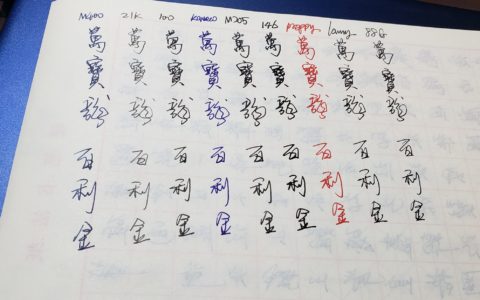 M400 21K 100 Kakuno M205 146 Preppy Lamy
萬 萬 萬 萬 萬 萬 萬 萬 萬
寶 寶 寶 寶 寶 寶 寶 寶 寶
龍 龍 龍 龍 龍 龍 龍 龍 龍
百 百 百 百 百 百 百 百 百
利 利 利 利 利 利 利 利 利
金 金 金 金 金 金 金 金 金